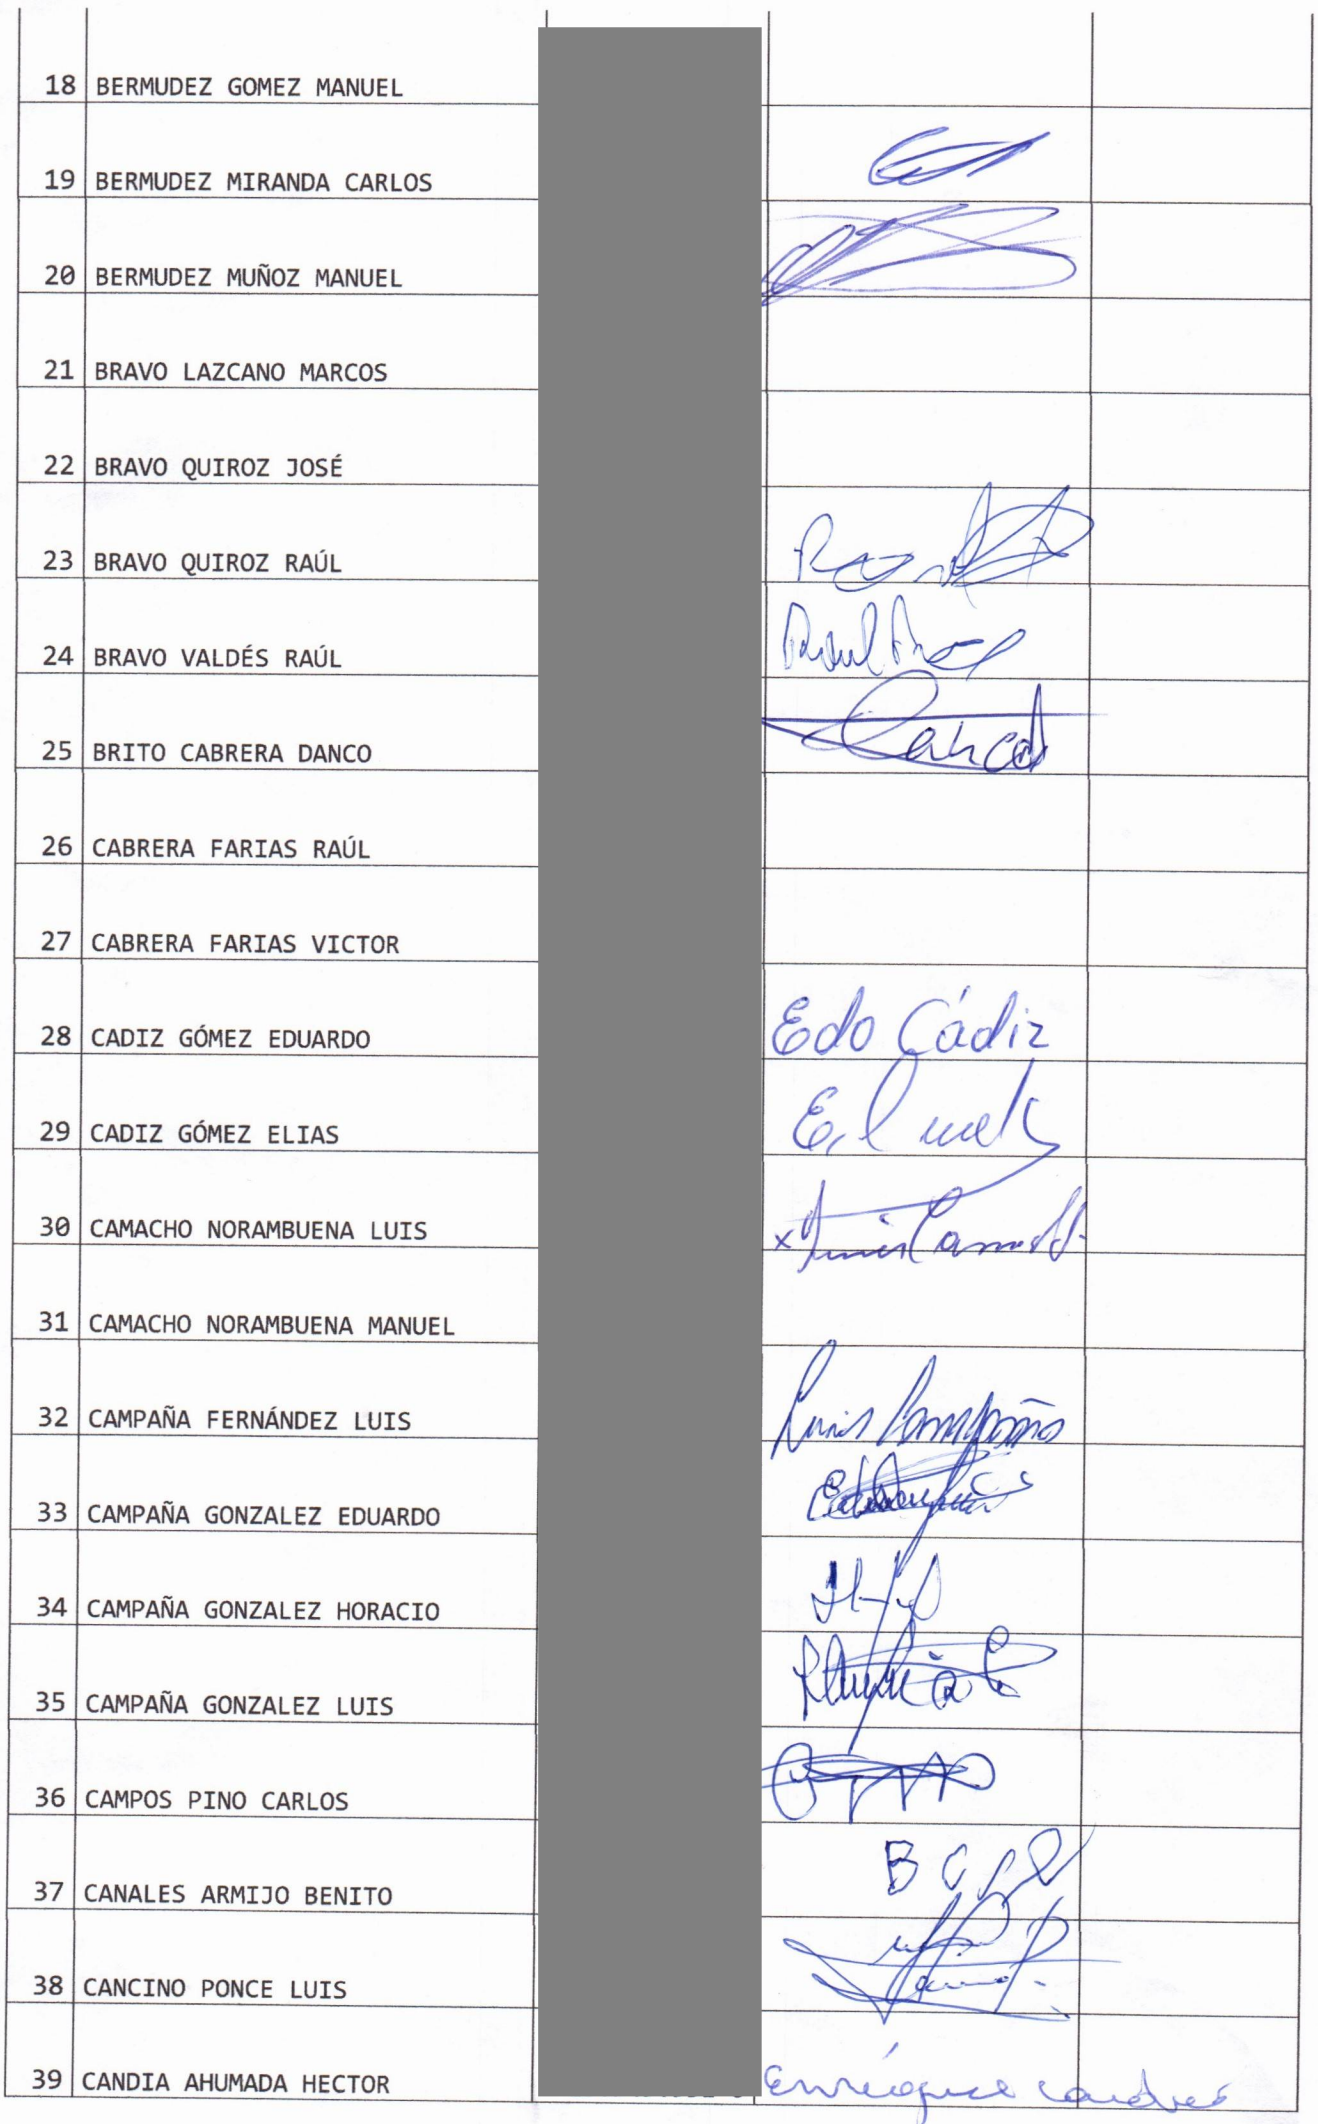 18 BERMUDEZ GOMEZ MANUEL
19 BERMUDEZ MIRANDA CARLOS
20 BERMUDEZ MUÑOZ MANUEL
21 BRAVO LAZCANO MARCOS
22 BRAVO QUIROZ JOSÉ
23 BRAVO QUIROZ RAÚL
24 BRAVO VALDÉS RAÚL Raul
25 BRITO CABRERA DANCO Danco
26 CABRERA FARIAS RAÚL
27 CABRERA FARIAS VICTOR
28 CADIZ GÓMEZ EDUARDO Edo Cádiz
29 CADIZ GÓMEZ ELIAS
30 CAMACHO NORAMBUENA LUIS x Luis
31 CAMACHO NORAMBUENA MANUEL
32 CAMPAÑA FERNÁNDEZ LUIS Luis Campaña
33 CAMPAÑA GONZALEZ EDUARDO
34 CAMPAÑA GONZALEZ HORACIO
35 CAMPAÑA GONZALEZ LUIS
36 CAMPOS PINO CARLOS
37 CANALES ARMIJO BENITO B C
38 CANCINO PONCE LUIS
39 CANDIA AHUMADA HECTOR